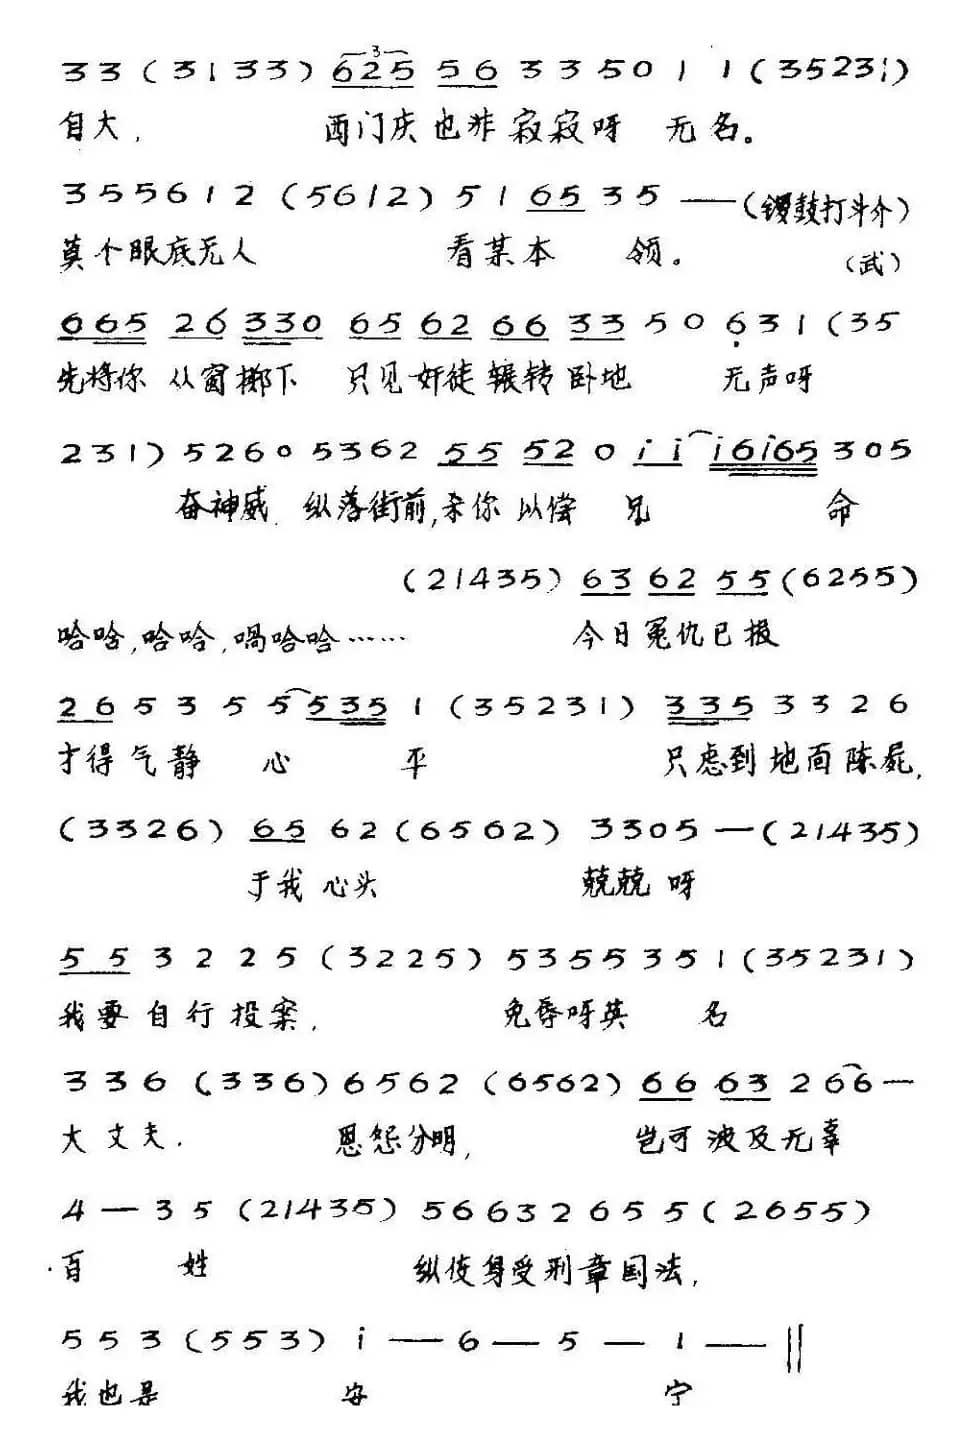 33(3133) 625 56 33501 1(35231)
自大, 西门庆也非寂寂呀 无名。
355612(5612) 51 65 35 ——(锣鼓打斗介)
莫个眼底无人 看某本 领。 (武)
665 26 330 65 62 66 33 50 631(35
先将你 从窗掷下 只见奸徒辗转卧地 无声呀
231)5260 5362 55 520 ii i6i65 305
奋神威, 纵落街前,杀你以偿 兄 命
(21435) 63 62 55(6255)
哈哈,哈哈,嗬哈哈…… 今日冤仇已报
26 53 55 535 1(35231) 335 3326
才得气静 心 平 只虑到地面陈屍,
(3326) 65 62(6562) 3305—(21435)
于我心头 兢兢呀
55 3225(3225) 5355351(35231)
我要自行投案, 免辱呀英 名
336(336)6562(6562) 66 63 266—
大丈夫. 恩怨分明, 岂可波及无辜
4—35(21435) 56632655(2655)
百 姓 纵使身受刑章国法,
553(553) i——6—5—1——‖
我也是 安 宁